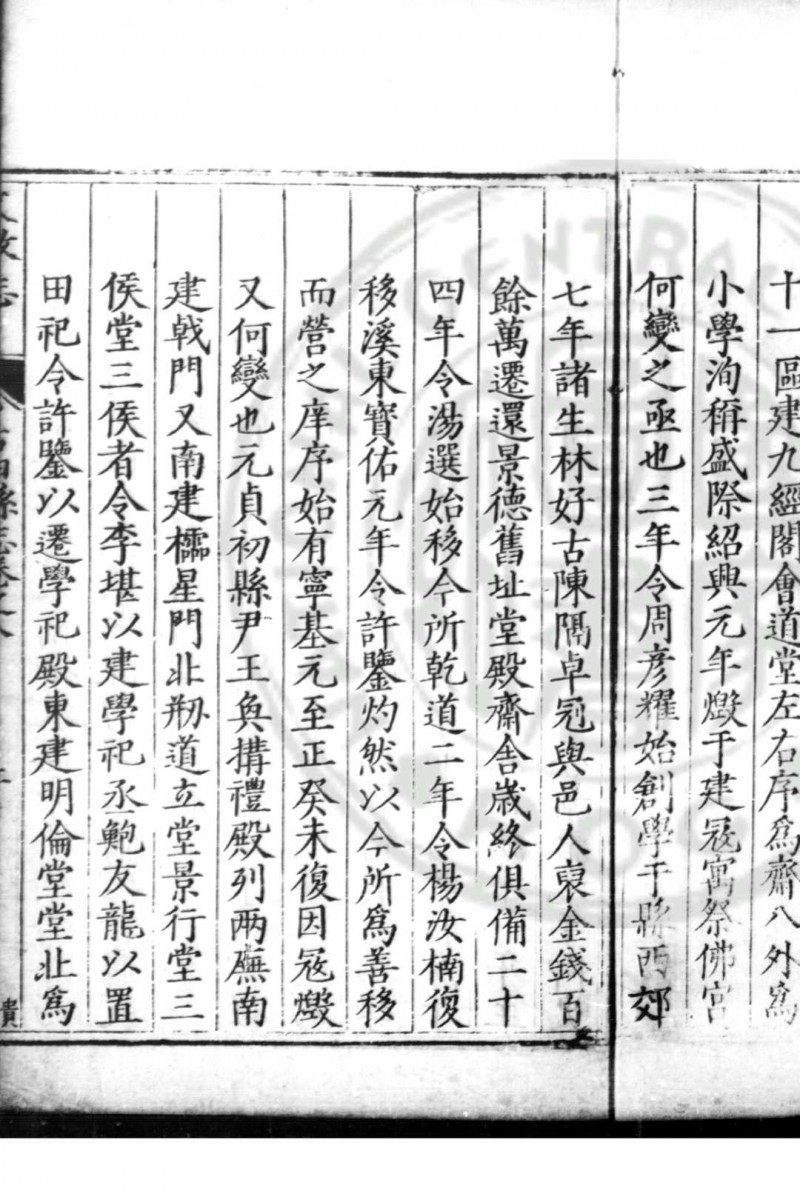 十一區建九經閣會道堂左右序爲齋八外爲
小學洵稱盛際紹興元年燬于建冦寓祭佛宮
何變之亟也三年令周彦耀始創學于縣西郊
七年諸生林好古陳隅卓冠與邑人裒金錢百
餘萬遷還景德舊址堂殿齋舍歲終俱備二十
四年令湯選始移今所乾道二年令楊汝楠復
移溪東寶佑元年令許鑒灼然以今所爲善移
而營之庠序始有寧基元至正癸未復因冦燬
又何變也元貞初縣尹王奐搆禮殿列两廡南
建戟門又南建櫺星門北剏道立堂景行堂三
侯堂三侯者令李堪以建學祀丞鮑友龍以置
田祀令許鑒以遷學祀殿東建明倫堂堂北爲
縣志卷之六